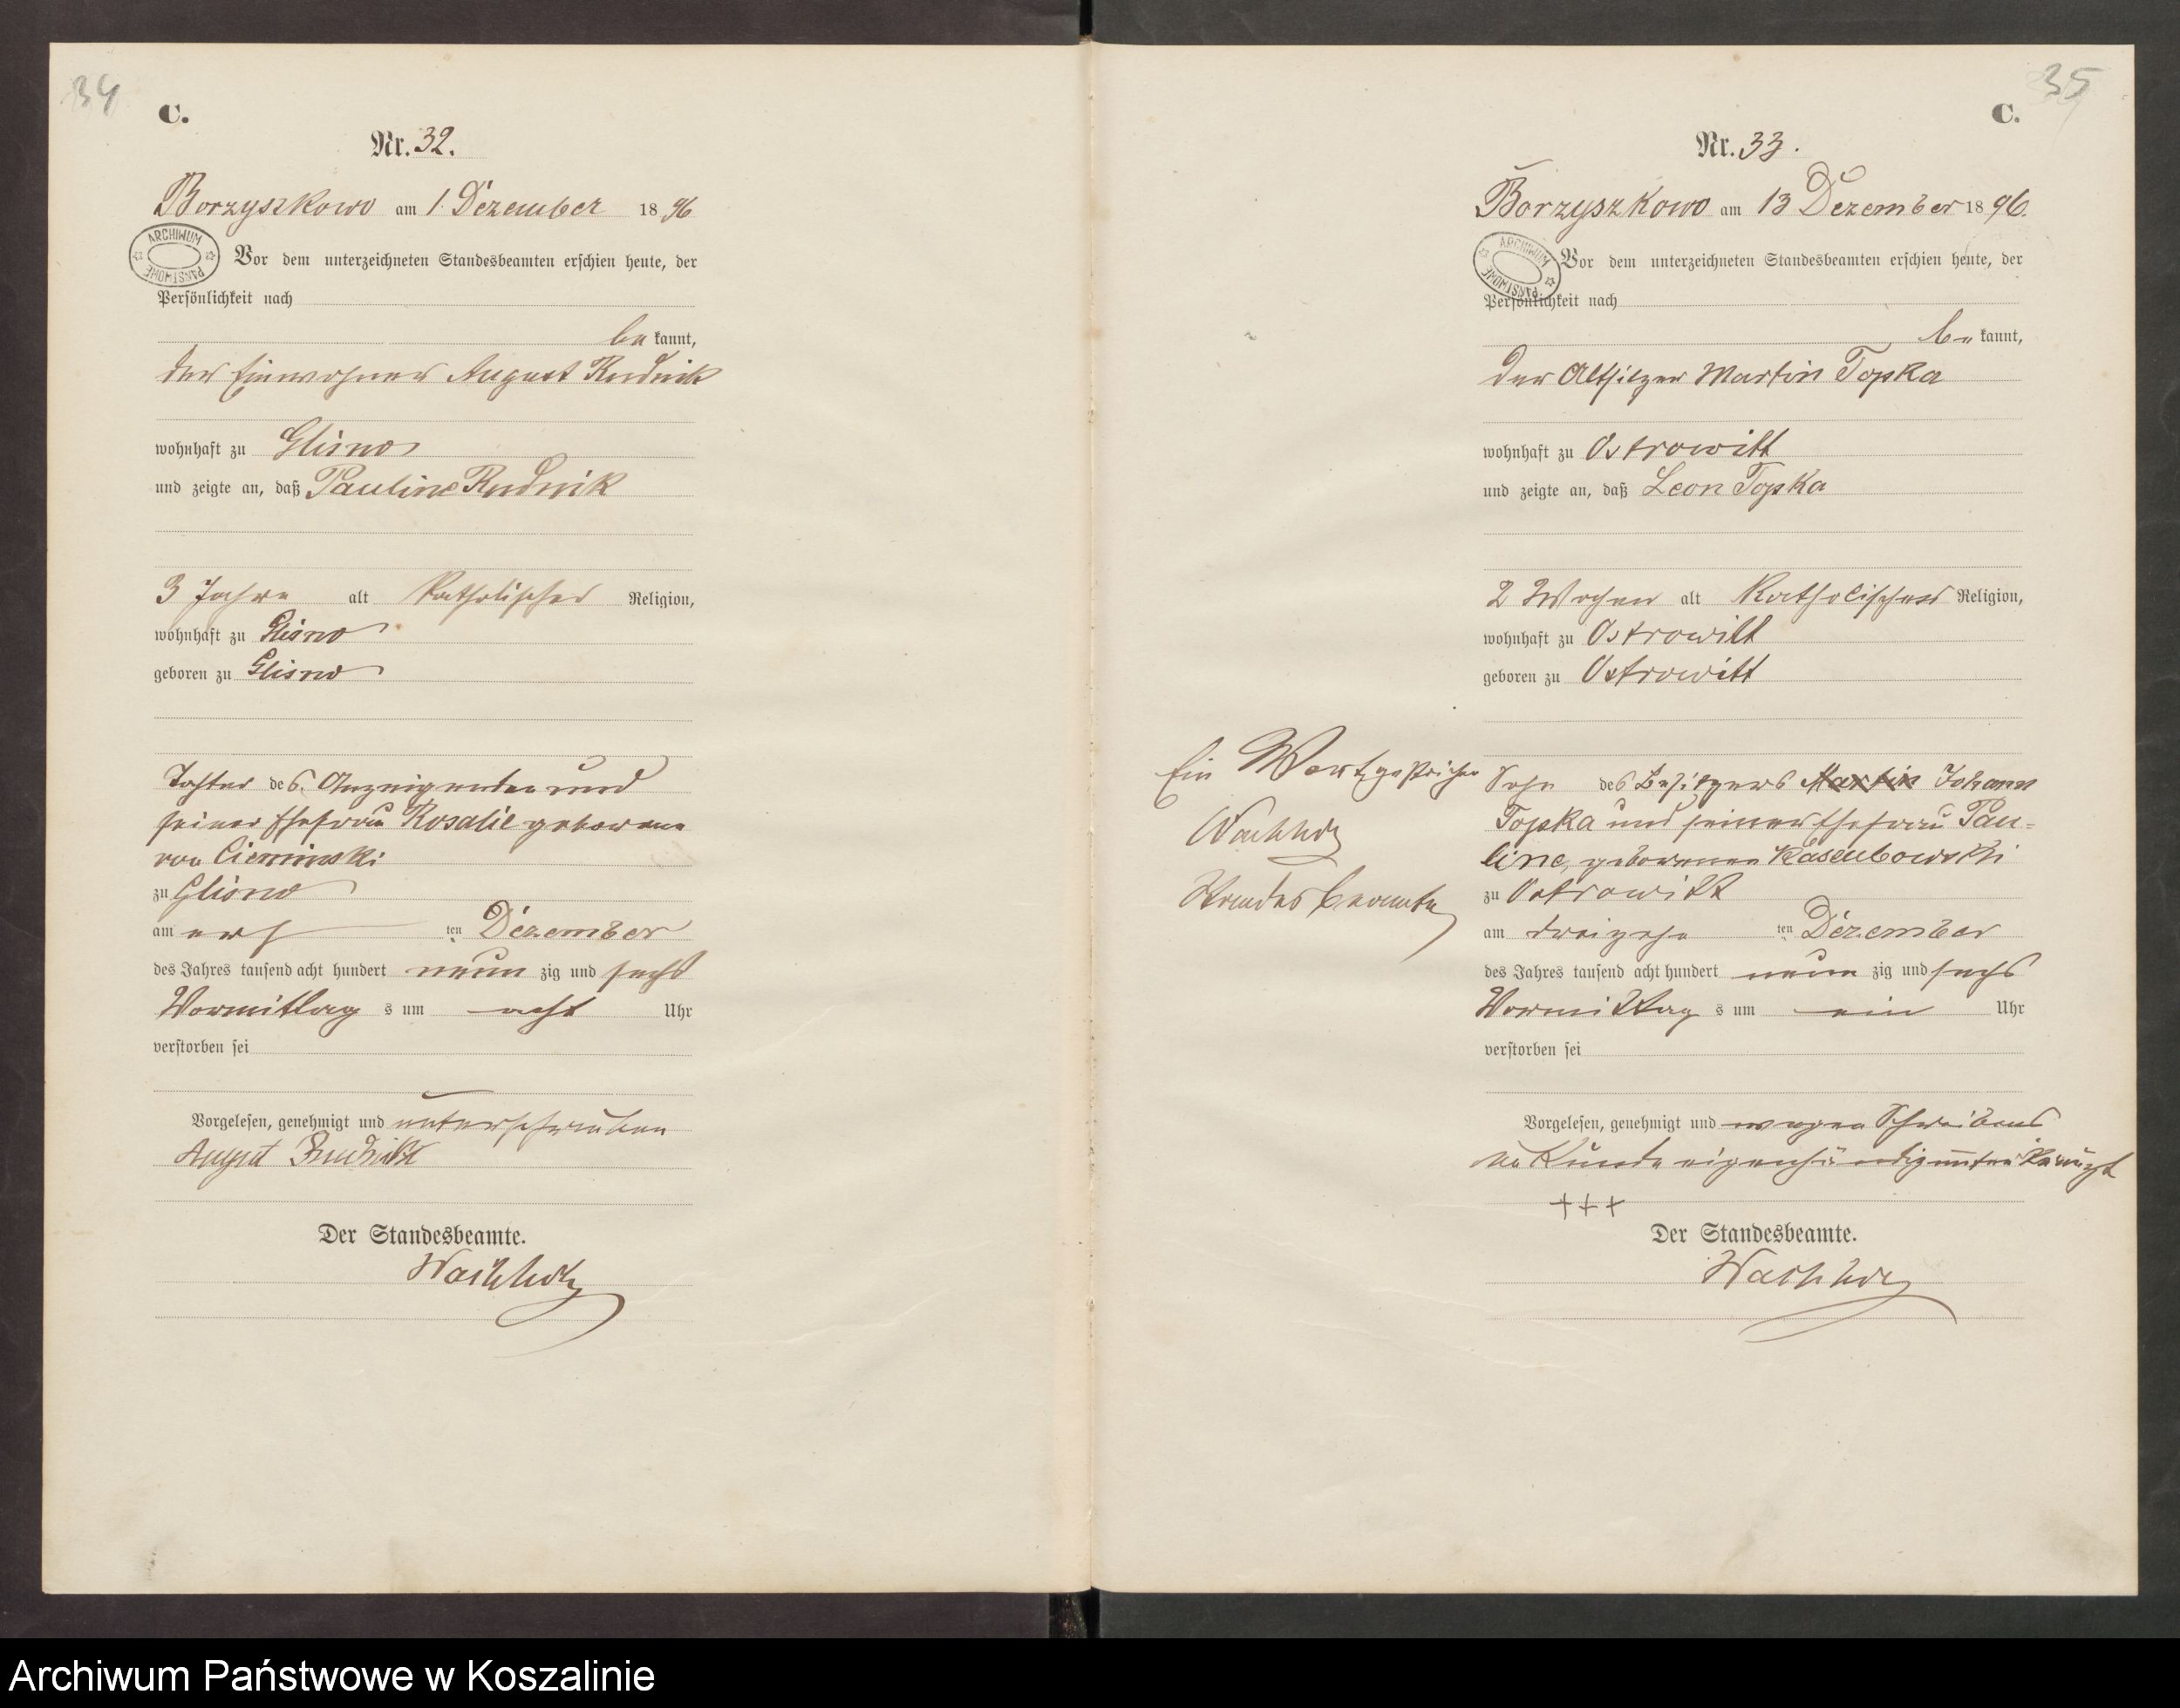 34
C.
Nr. 32.
Borzyszkowo am 1. Dezember 1896
ARCHIWUM PAŃSTWOWE
Vor dem unterzeichneten Standesbeamten erschien heute, der
Persönlichkeit nach
bekannt,
der Einwohner August Rudnik
wohnhaft zu Glisno
und zeigte an, daß Pauline Rudnik
3 Jahre alt katholischer Religion,
wohnhaft zu Glisno
geboren zu Glisno
Tochter des Anzeigenden und
seiner Ehefrau Rosalie geborene
von Cieminski
zu Glisno
am ersten Dezember
des Jahres tausend acht hundert neunzig und sechs
Vormittags um acht Uhr
verstorben sei
Vorgelesen, genehmigt und unterschrieben
August Rudnik
Der Standesbeamte.
Wachholz
35
C.
Nr. 33.
Borzyszkowo am 13 Dezember 1896.
ARCHIWUM PAŃSTWOWE
Vor dem unterzeichneten Standesbeamten erschien heute, der
Persönlichkeit nach
bekannt,
der Altsitzer Martin Topka
wohnhaft zu Ostrowitt
und zeigte an, daß Leon Topka
2 Wochen alt Katholischer Religion,
wohnhaft zu Ostrowitt
geboren zu Ostrowitt
Sohn des Besitzers Martin Johann
Topka und seiner Ehefrau Pau-
line, geborenen Kaseubowski
zu Ostrowitt
am dreizehnten Dezember
des Jahres tausend acht hundert neunzig und sechs
Vormittags um ein Uhr
verstorben sei
Vorgelesen, genehmigt und wegen Schreibens
un Kunde eigenhändig unterkreuzt
+++
Der Standesbeamte.
Wachholz
Ein Wort gestrichen
Wachholz
Standesbeamte
Archiwum Państwowe w Koszalinie